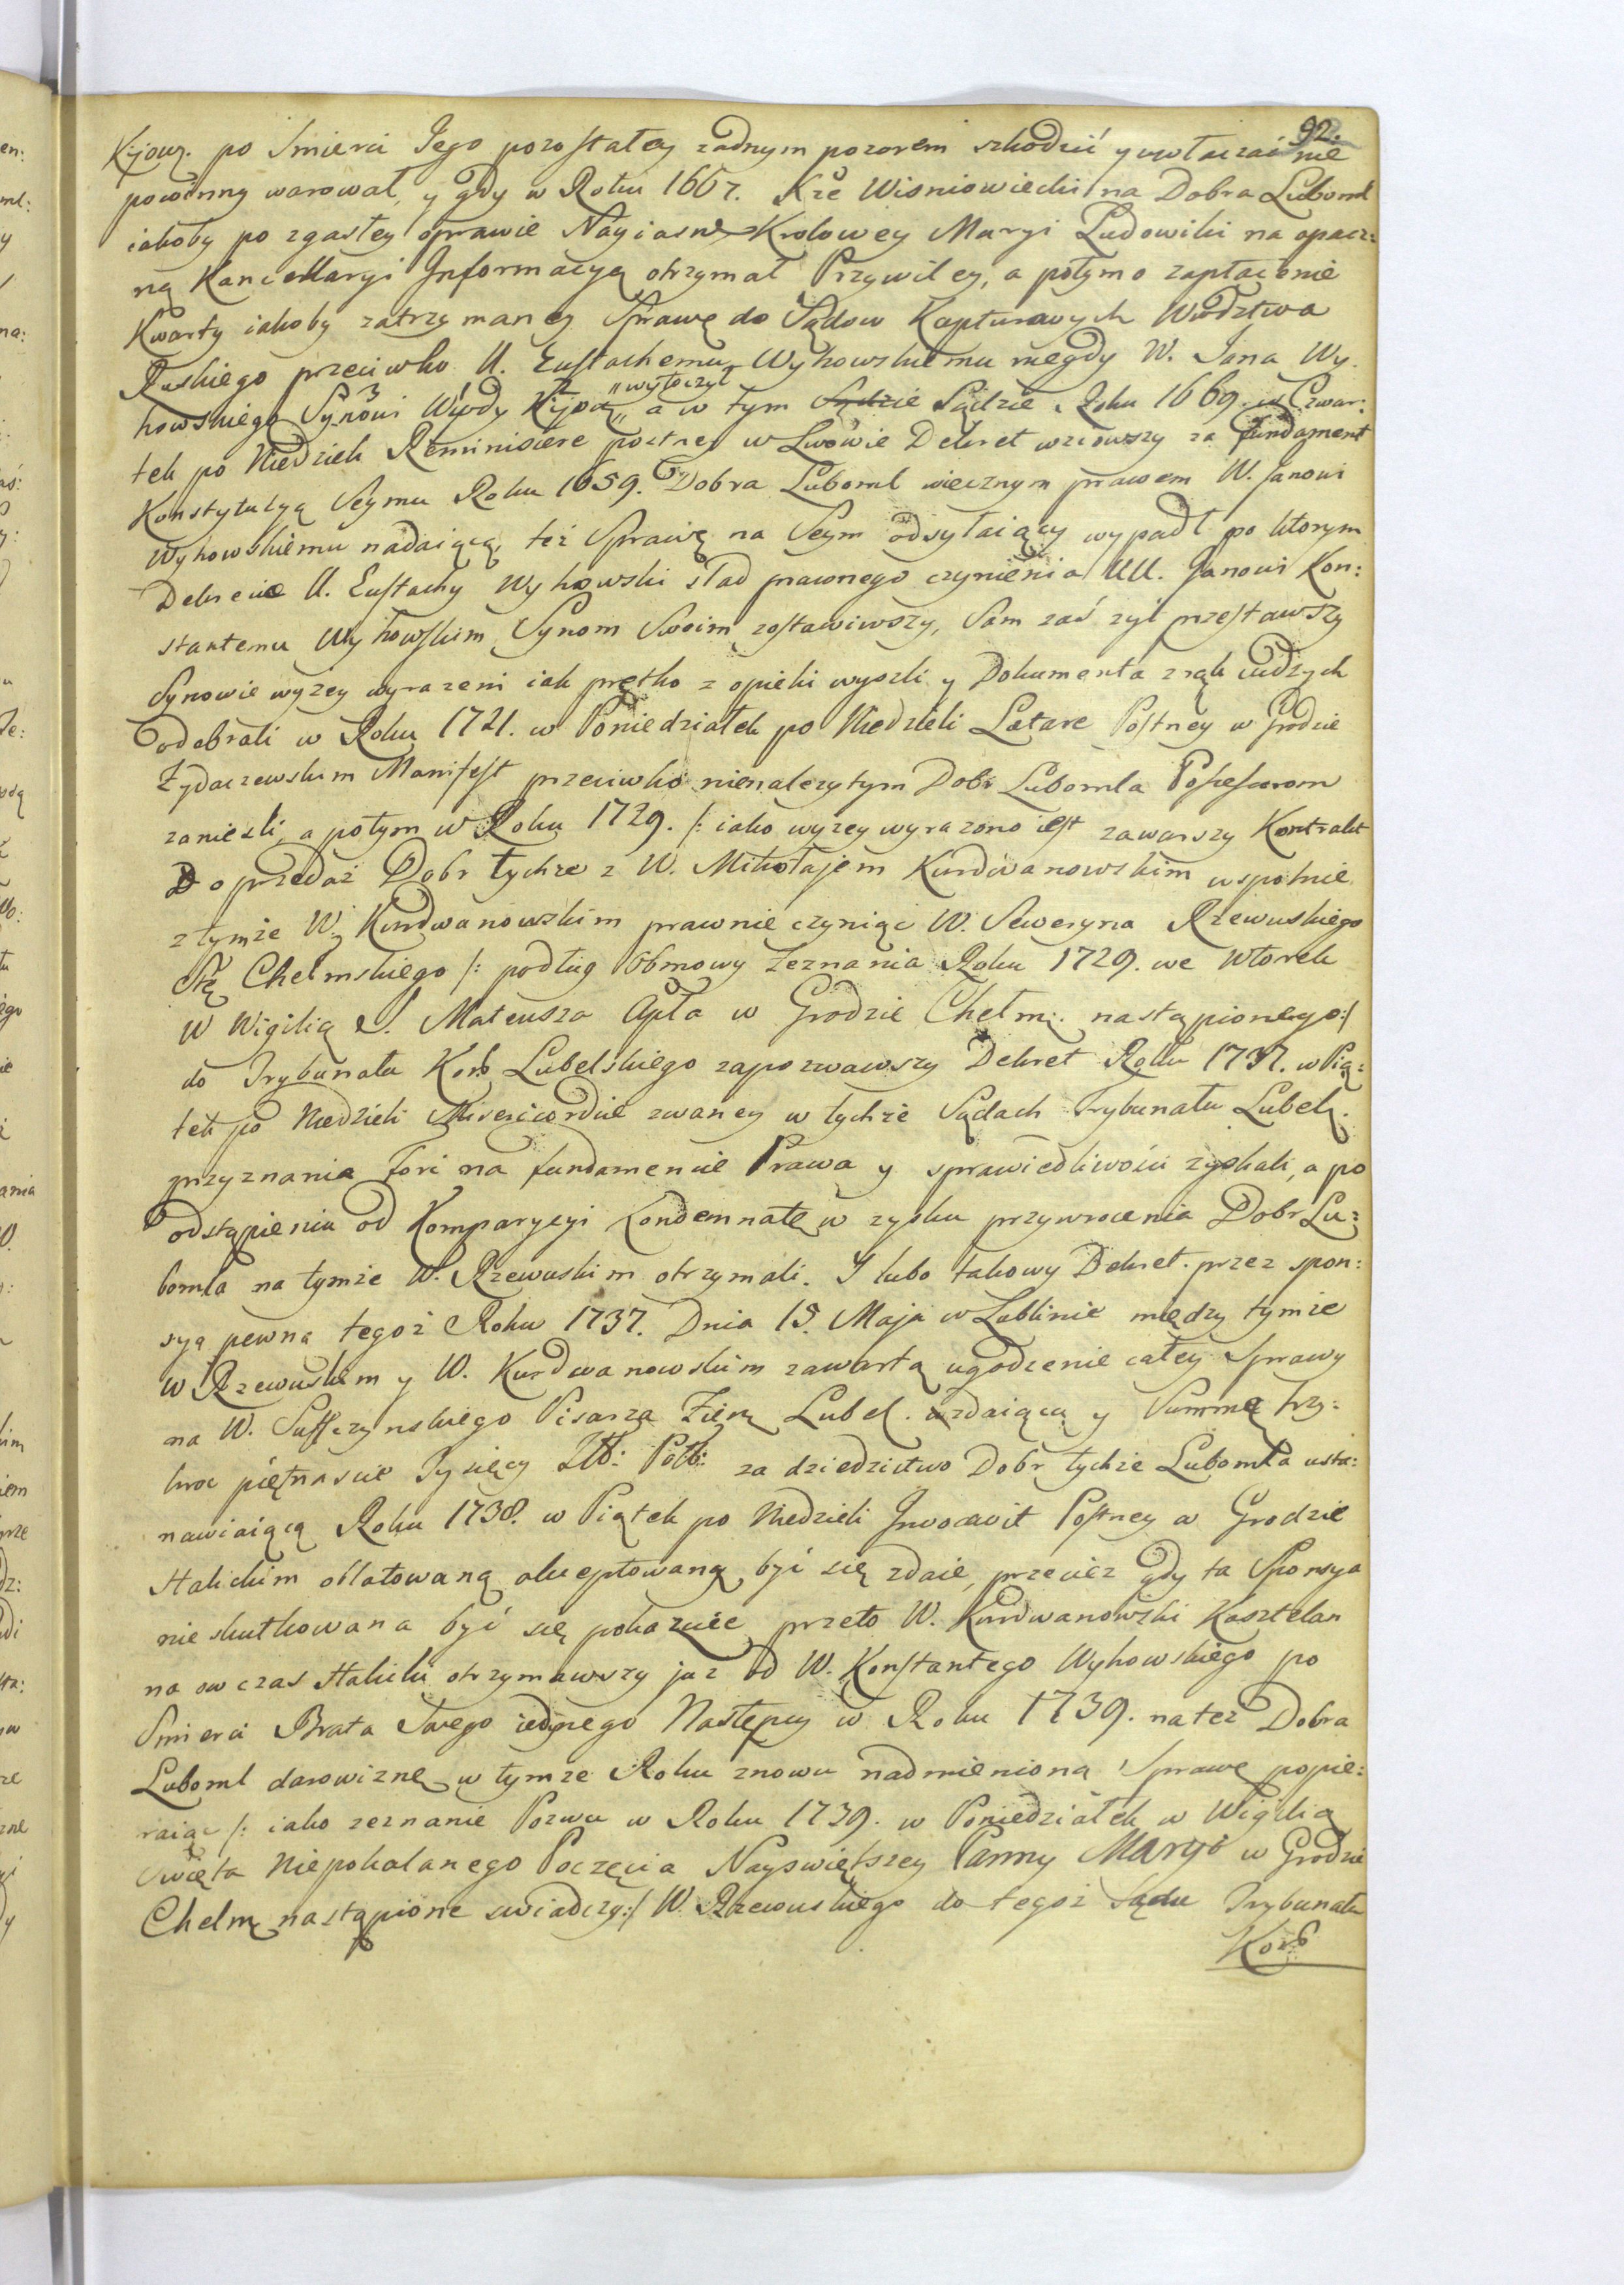 92.
Kijow. po Smierci Jego pozostałey żadnym pozorem szkodzić y uwłaczać nie
powinny warował, y gdy w Roku 1667. Xże Wisniowiecki na Dobra Luboml
iakoby po zgasłey oprawie Nayiasn Krolowey Maryi Ludowiki na opacz:
ną Kancellaryi Informacyą otrzymał Przywiley, a potym o zapłacenie
Kwarty iakoby zatrzymaney Sprawę do Sądow Kapturowych Wodztwa
Ruskiego przeciwko U. Eustachemu Wyhowskiemu niegdy W. Jana Wy.
howskiego Synowi Wwdy Kijow „wytoczył„ a w tym Sądzie Sądzie Roku 1669. w Czwar:
tek po Niedzieli Reminiscere postney w Lwowie Dekret wziowszy za fundament
Konstytucyą Seymu Roku 1659. Dobra Luboml wiecznym prawem W. Janowi
Wyhowskiemu nadaiącą, też Sprawę na Seym odsyłaiący wypadł po ktorym
Dekrecie U. Eustachy Wyhowski slad prawnego czynienia UU. Janowi Kon:
stantemu Wyhowskim Synom Swoim zostawiwszy, Sam zaś żyć przestawszy
Synowie wyżey wyrażeni iak prętko z opieki wyszli y Dokumenta z rąk cudzych
odebrali w Roku 1721. w Poniedziałek po Niedzieli Lætare Postney w Grodzie
Żydaczewskim Manifest przeciwko nienależytym Dobr Lubomla Possessorom
zaniesli, a potym w Roku 1729. /: iako wyżey wyrażono iest zawarszy Kontrakt
o przedaż Dobr tychże z W. Mikołajem Kurdwanowskim wspolnie
z tymże W. Kurdwanowskim prawnie czyniąc W. Seweryna Rzewuskiego
Stę Chełmskiego /: podług Obmowy Zeznania Roku 1729. we Wtorek
w Wigilią S. Mateusza Apła w Grodzie Chełm. nastąpionego:/
do Trybunału Kor: Lubelskiego zapozwawszy Dekret Roku 1737. w Pią:
tek po Niedzieli Misericordiæ zwaney w tychże Sądach Trybunału Lubel.
przyznania fori na fundamencie Prawa y sprawiedliwości zyskali, a po
odstąpieniu od Komparycyi Kondemnatę w zysku przywrocenia Dobr Lu:
bomla na tymże W. Rzewuskim otrzymali. I lubo takowy Dekret przez spon:
syą pewną tegoż Roku 1737. Dnia 15. Maja w Lublinie między tymże
W Rzewuskim y W. Kurdwanowskim zawartą ugodzenie całey Sprawy
na W. Suffczynskiego Pisarza Ziem Lubel. zdaiącą y Summę trzy:
kroc piętnascie Tysięcy Złł: Poll: za dziedzictwo Dobr tychże Lubomla usta:
nawiaiącą Roku 1738. w Piątek po Niedzieli Invocavit Postney w Grodzie
Halickim oblatowaną akceptowaną być się zdaie, przecież gdy ta Sponsya
nie skutkowana być się pokazuie przeto W. Kurdwanowski Kasztelan
na ow czas Halicki otrzymawszy już od W. Konstantego Wyhowskiego po
Smierci Brata Swego iedynego Następcy w Roku 1739. na też Dobra
Luboml darowiznę w tymże Roku znowu nadmienioną Sprawę popie:
raiąc /: iako zeznanie Pozwu w Roku 1739. w Poniedziałek w Wigilią
Swięta Niepokalanego Poczęcia Nayswiętszey Panny Maryi w Grodzie
Chełm nastąpione swiadczy:/ W. Rzewuskiego do tegoż Sądu Trybunału
Kor: